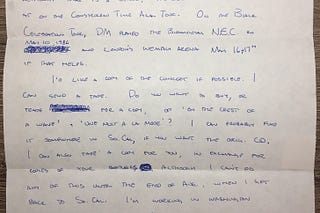 AT ON THE CONSTRUCTION TIME AGAIN TOUR. ON THE BLACK
CELEBRATION TOUR, DM PLAYED THE BIRMINGHAM N.E.C. ON
MAY 10, 1986
AND LONDON'S WEMBLY ARENA MAY 16/17TH
IF THAT HELPS.
I'D LIKE A COPY OF THE CONCERT IF POSSIBLE. I
CAN SEND A TAPE. DO YOU WANT TO BUY, OR
TRADE FOR A COPY, OF "ON THE CREST OF
A WAVE" + "UNE NUIT A LA MODE"? I CAN PROBABLY FIND
IT SOMEWHERE IN SO. CAL, IF YOU WANT THE ORIG. CD,
I CAN ALSO TAPE A COPY FOR YOU, IN EXCHANGE FOR
COPIES OF YOUR BOOTLEGS. ALTHOUGH I CAN'T DO
ANY OF THIS UNTIL THE END OF AUG, WHEN I GET
BACK TO SO. CAL. I'M WORKING IN WASHINGTON